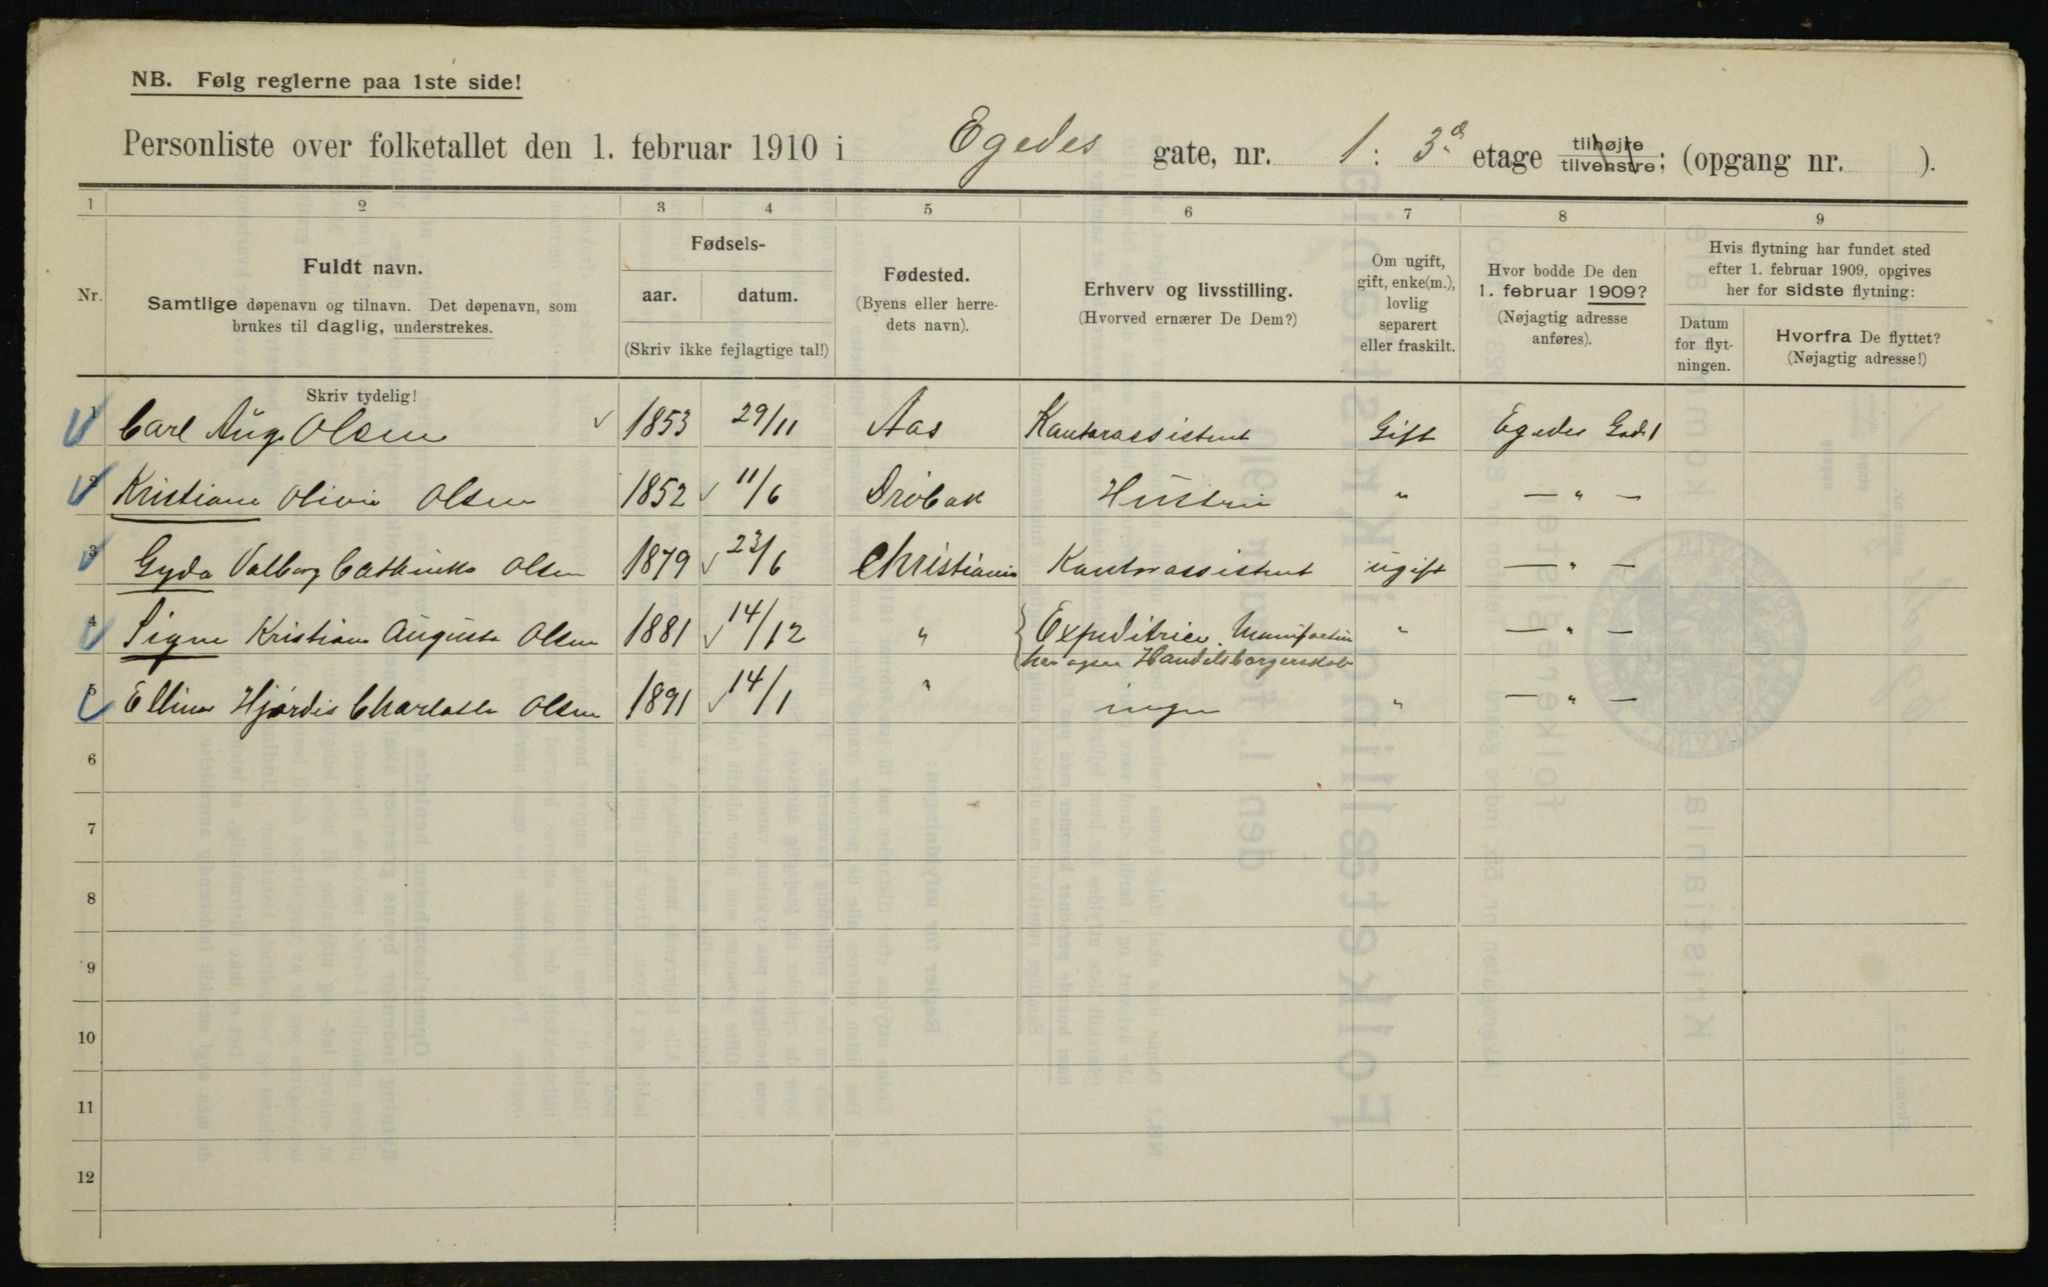 NB. Følg reglerne paa 1ste side!
Personliste over folketallet den 1. februar 1910 i Egedes gate, nr. 1 : 3d etage tilhøjre tilvenstre; (opgang nr. ).
1 2 3 4 5 6 7 8 9
Nr.
Fuldt navn.
Samtlige døpenavn og tilnavn. Det døpenavn, som
brukes til daglig, understrekes.
Fødsels-
aar. datum.
(Skriv ikke fejlagtige tal!)
Fødested.
(Byens eller herre-
dets navn).
Erhverv og livsstilling.
(Hvorved ernærer De Dem?)
Om ugift,
gift, enke(m.),
lovlig
separert
eller fraskilt.
Hvor bodde De den
1. februar 1909?
(Nøjagtig adresse
anføres).
Hvis flytning har fundet sted
efter 1. februar 1909, opgives
her for sidste flytning:
Datum
for flyt-
ningen.
Hvorfra De flyttet?
(Nøjagtig adresse!)
Skriv tydelig!
1 Carl Aug. Olsen 1853 29/11 Aas Kontorassistent Gift Egedes Gade 1
2 Kristiane Olivie Olsen 1852 11/6 Drøbak Hustru " — " —
3 Gyda Valborg Cathinka Olsen 1879 23/6 Christiania Kontorassistent ugift — " —
4 Signe Kristiane Augusta Olsen 1881 14/12 " Expeditrice. Manufactur " — " —
har ogsaa Handelsborgerskab
5 Ellina Hjørdis Charlotte Olsen 1891 14/1 " ingen " — " —
6
7
8
9
10
11
12